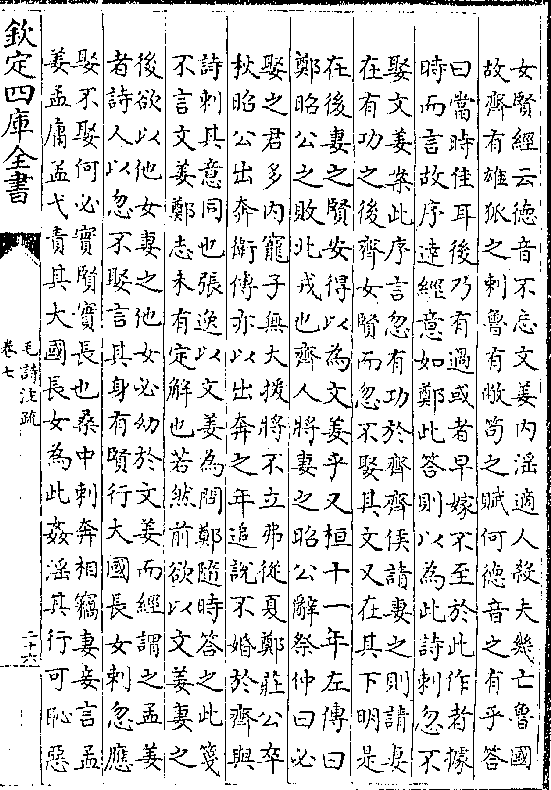 女賢經云德音不忘文姜内淫適人殺夫幾亡魯國
故齊有雄狐之刺魯有敝笱之賦何德音之有乎答
曰當時佳耳後乃有過或者早嫁不至於此作者據
時而言故序達經意如鄭此答則以為此詩刺忽不
娶文姜案此序言忽有功於齊齊侯請妻之則請妻
在有功之後齊女賢而忽不娶其文又在其下明是
在後妻之賢女得以為文姜乎又桓十一年左傳曰
鄭昭公之敗北戎也齊人將妻之昭公辭祭仲曰必
娶之君多内寵子無大援將不立弗從夏鄭莊公卒
秋昭公出奔衛傳亦以出奔之年追說不婚於齊與
詩刺其意同也張逸以文姜為問鄭隨時答之此箋
不言文姜鄭志未有定解也若然前欲以文姜妻之
後欲以他女妻之他女必幼於文姜而經謂之孟姜
者詩人以忽不娶言其身有賢行大國長女刺忽應
娶不娶何必實賢實長也桑中刺奔相竊妻妾言孟
姜孟庸孟弋責其大國長女為此姦淫其行可恥惡
欽定四庫全書
毛詩注疏
卷七
二十六